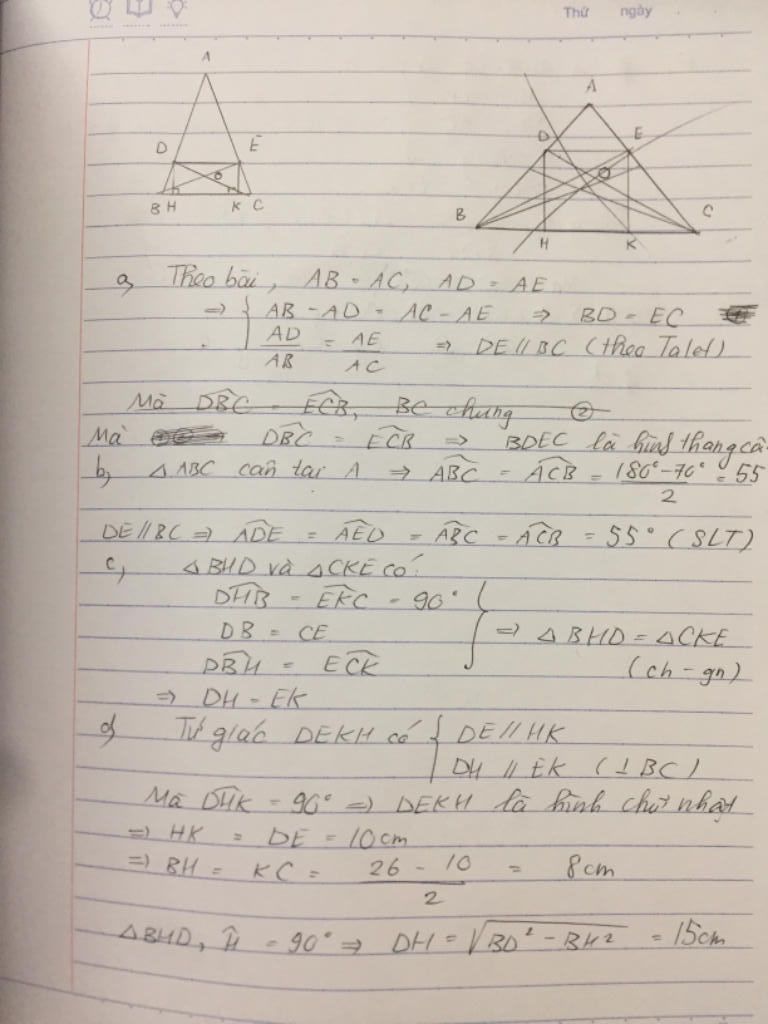 Thứ ngày
A
D E
O
B H K C
A
D E
O
B C
H K
a, Theo bài, AB = AC, AD = AE
⇒ { AB - AD = AC - AE ⇒ BD = EC
AD/AB = AE/AC ⇒ DE // BC (theo Talet)
Mà DBC^ = ECB^, BC chung (2)
Mà DBC^ = ECB^ ⇒ BDEC là hình thang cân
b, △ABC cân tại A ⇒ ABC^ = ACB^ = (180° - 70°)/2 = 55
DE // BC ⇒ ADE^ = AED^ = ABC^ = ACB^ = 55° (SLT)
c, △BHD và △CKE có:
DHB^ = EKC^ = 90°
DB = CE } ⇒ △BHD = △CKE
DBH^ = ECK^ (ch - gn)
⇒ DH = EK
d, Tứ giác DEKH có { DE // HK
DH // EK (⊥ BC)
Mà DHK^ = 90° ⇒ DEKH là hình chữ nhật
⇒ HK = DE = 10cm
⇒ BH = KC = (26 - 10)/2 = 8cm
△BHD, H^ = 90° ⇒ DH = √(BD² - BH²) = 15cm